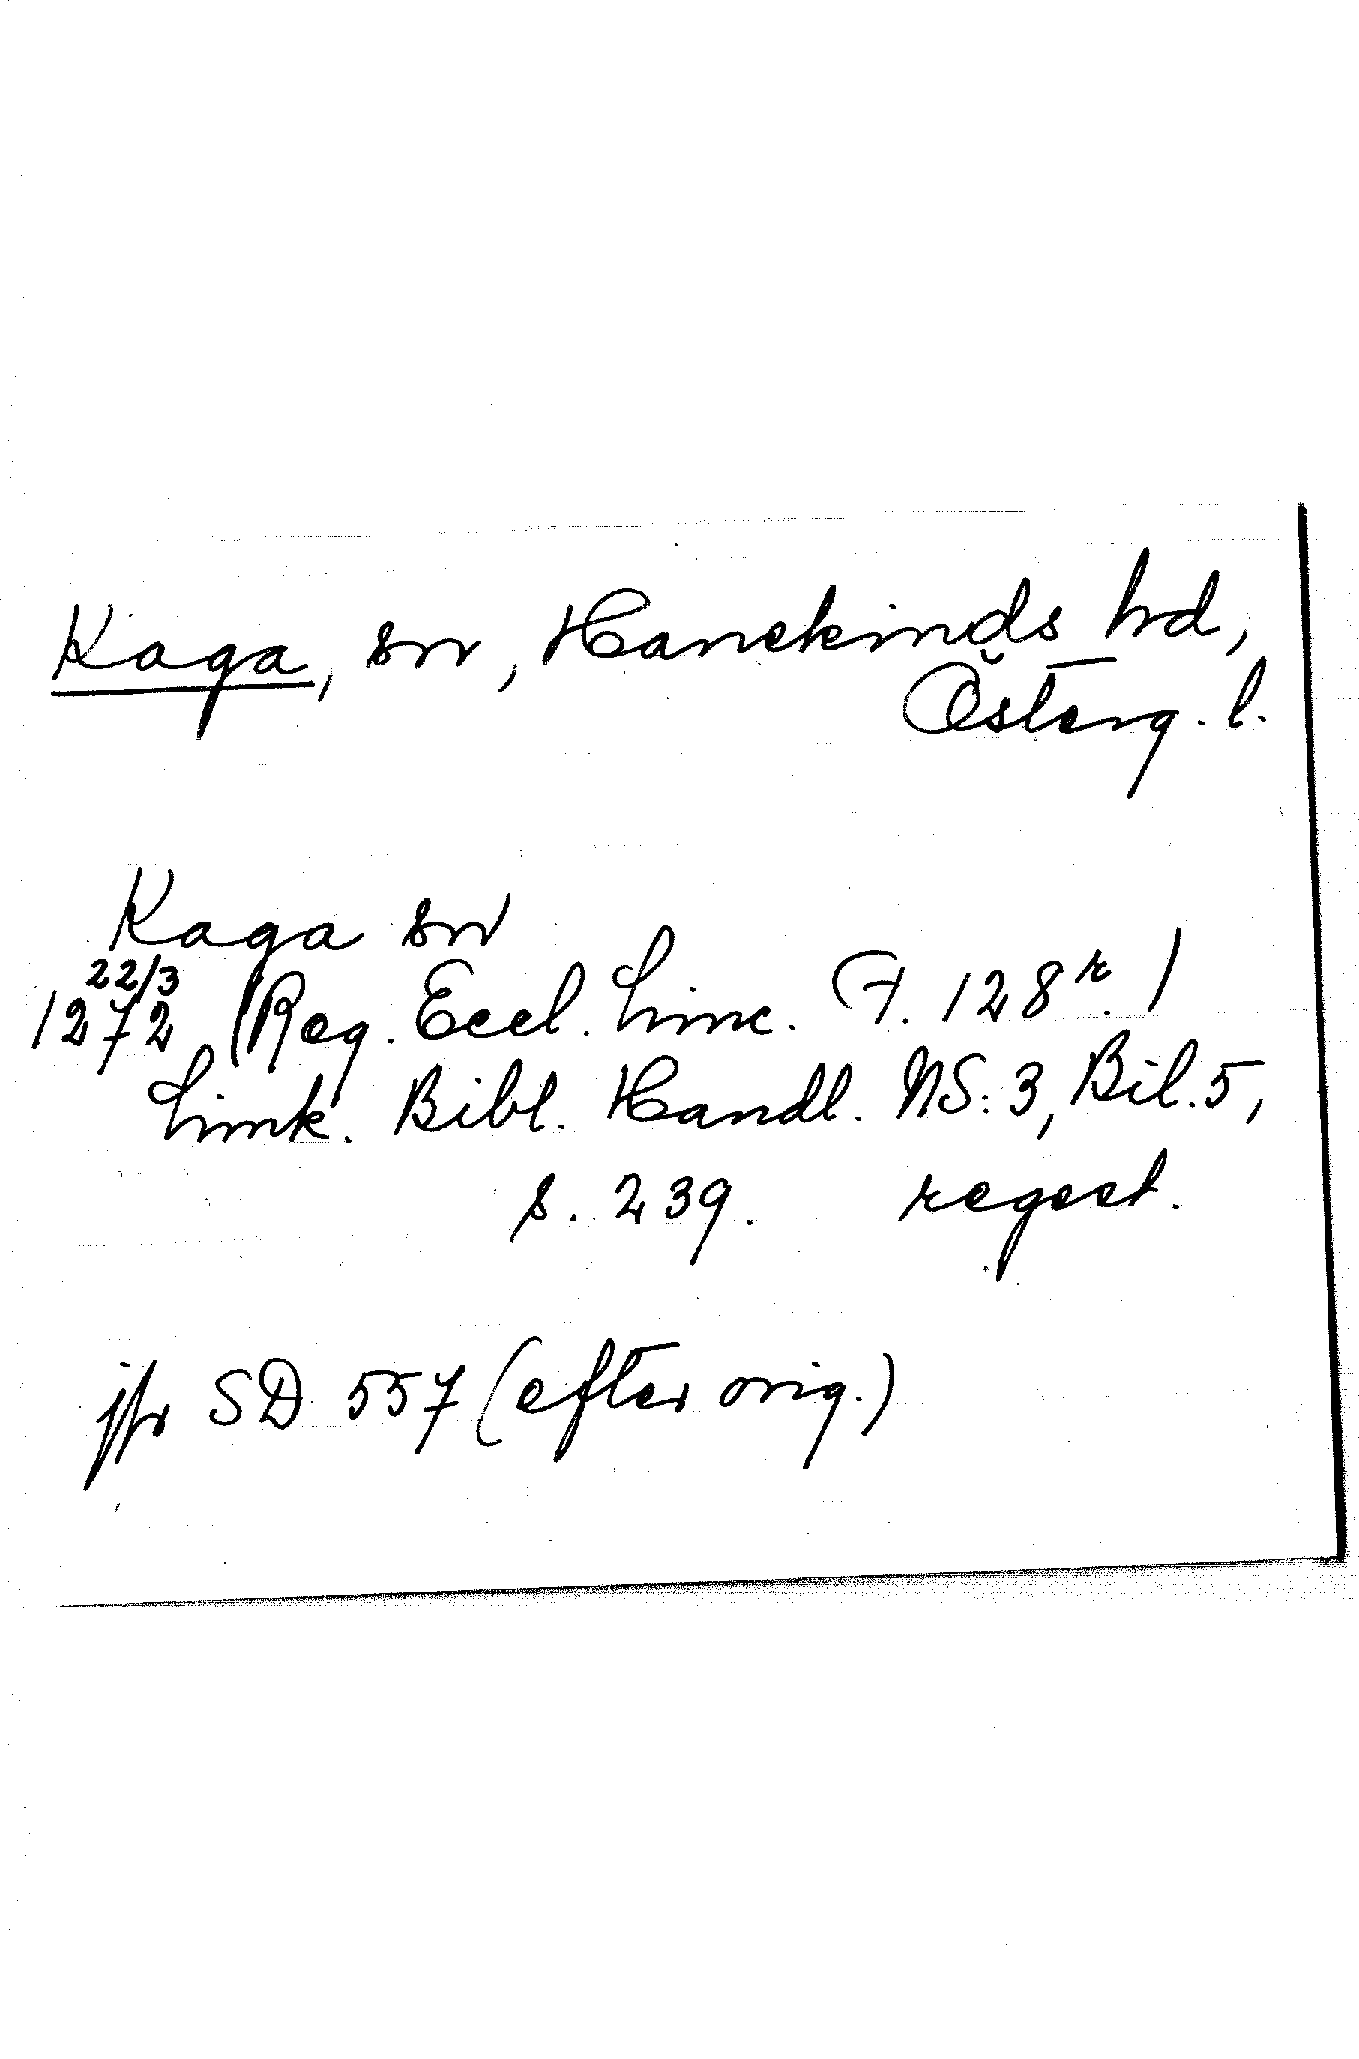 Kaga, sn, Hanekinds hd,
Österg. l.
Kaga sn
22/3
1272 (Reg. Eccl. Linc. F. 128r. /
Link. Bibl. Handl. NS: 3, Bil. 5,
s. 239. regest.
jfr SD 557 (efter orig.)